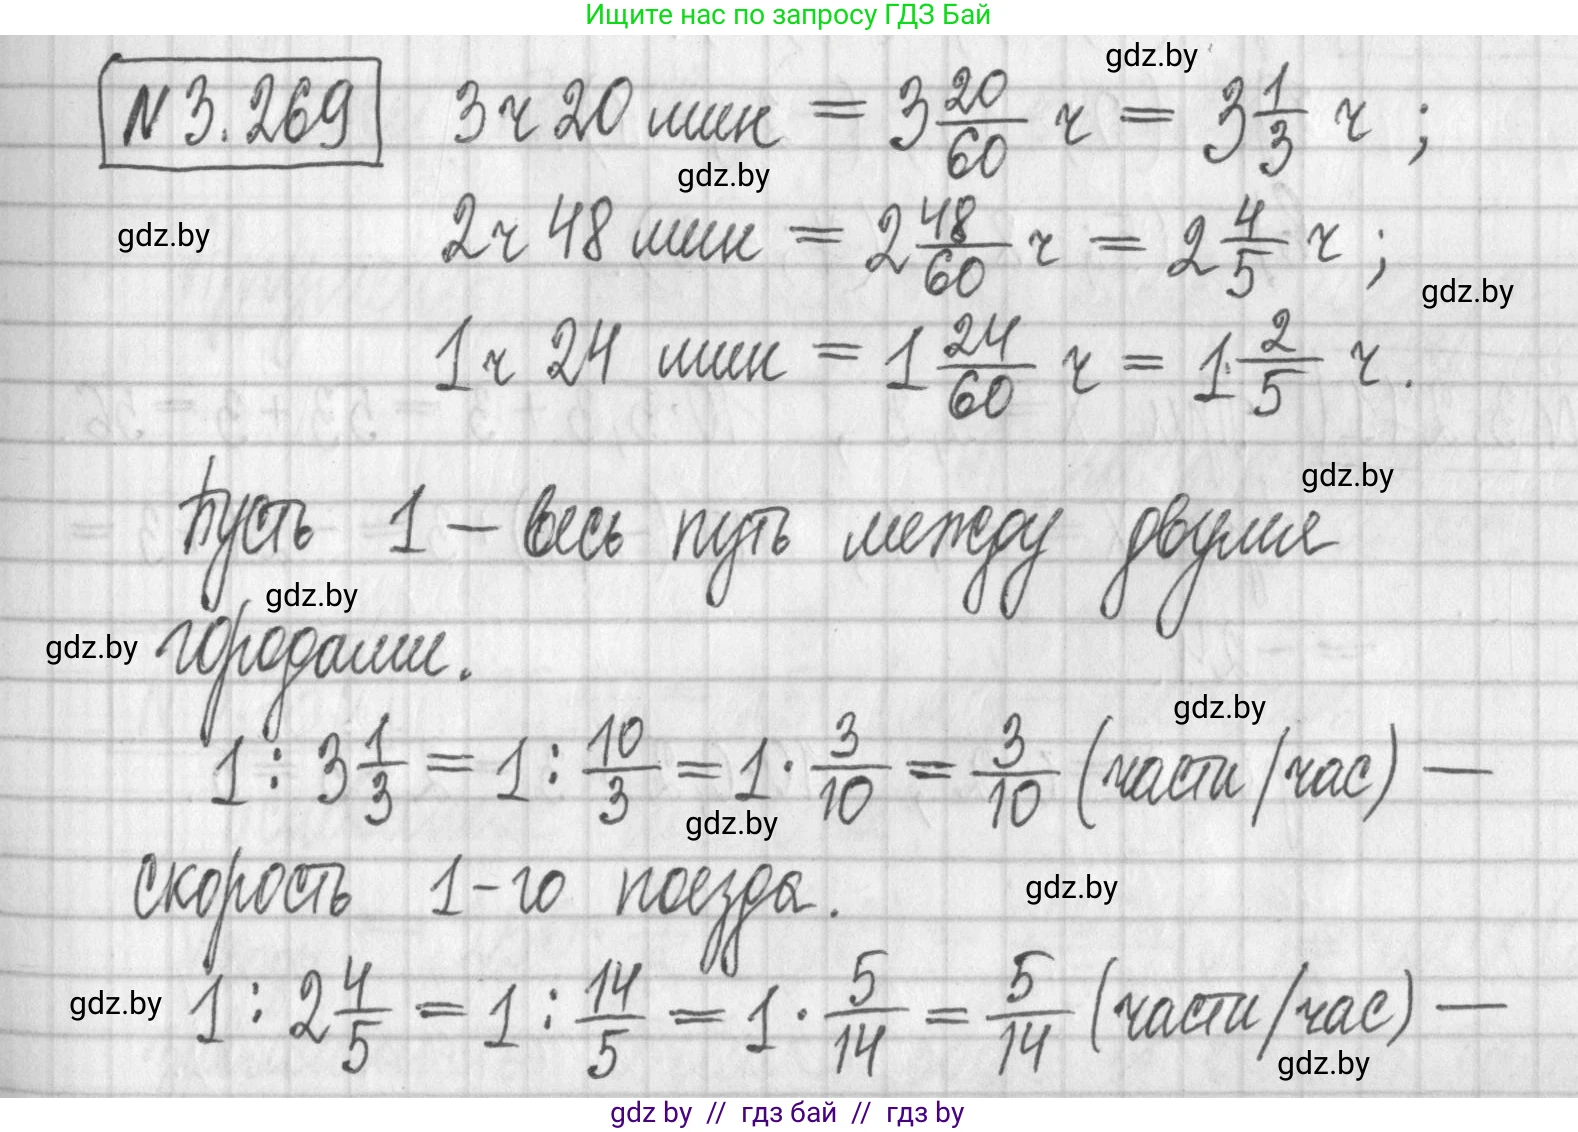 Ищите нас по запросу ГДЗ Бай
gdz.by
N 3.269 3 ч 20 мин = 3 20/60 ч = 3 1/3 ч ;
gdz.by
gdz.by
2 ч 48 мин = 2 48/60 ч = 2 4/5 ч ;
gdz.by
1 ч 24 мин = 1 24/60 ч = 1 2/5 ч .
gdz.by
Пусть 1 – весь путь между двумя
gdz.by
gdz.by
городами.
gdz.by
1 : 3 1/3 = 1 : 10/3 = 1 · 3/10 = 3/10 (части/час) –
gdz.by
скорость 1-го поезда.
gdz.by
gdz.by
1 : 2 4/5 = 1 : 14/5 = 1 · 5/14 = 5/14 (части/час) –
gdz.by
gdz by // гдз бай // гдз by